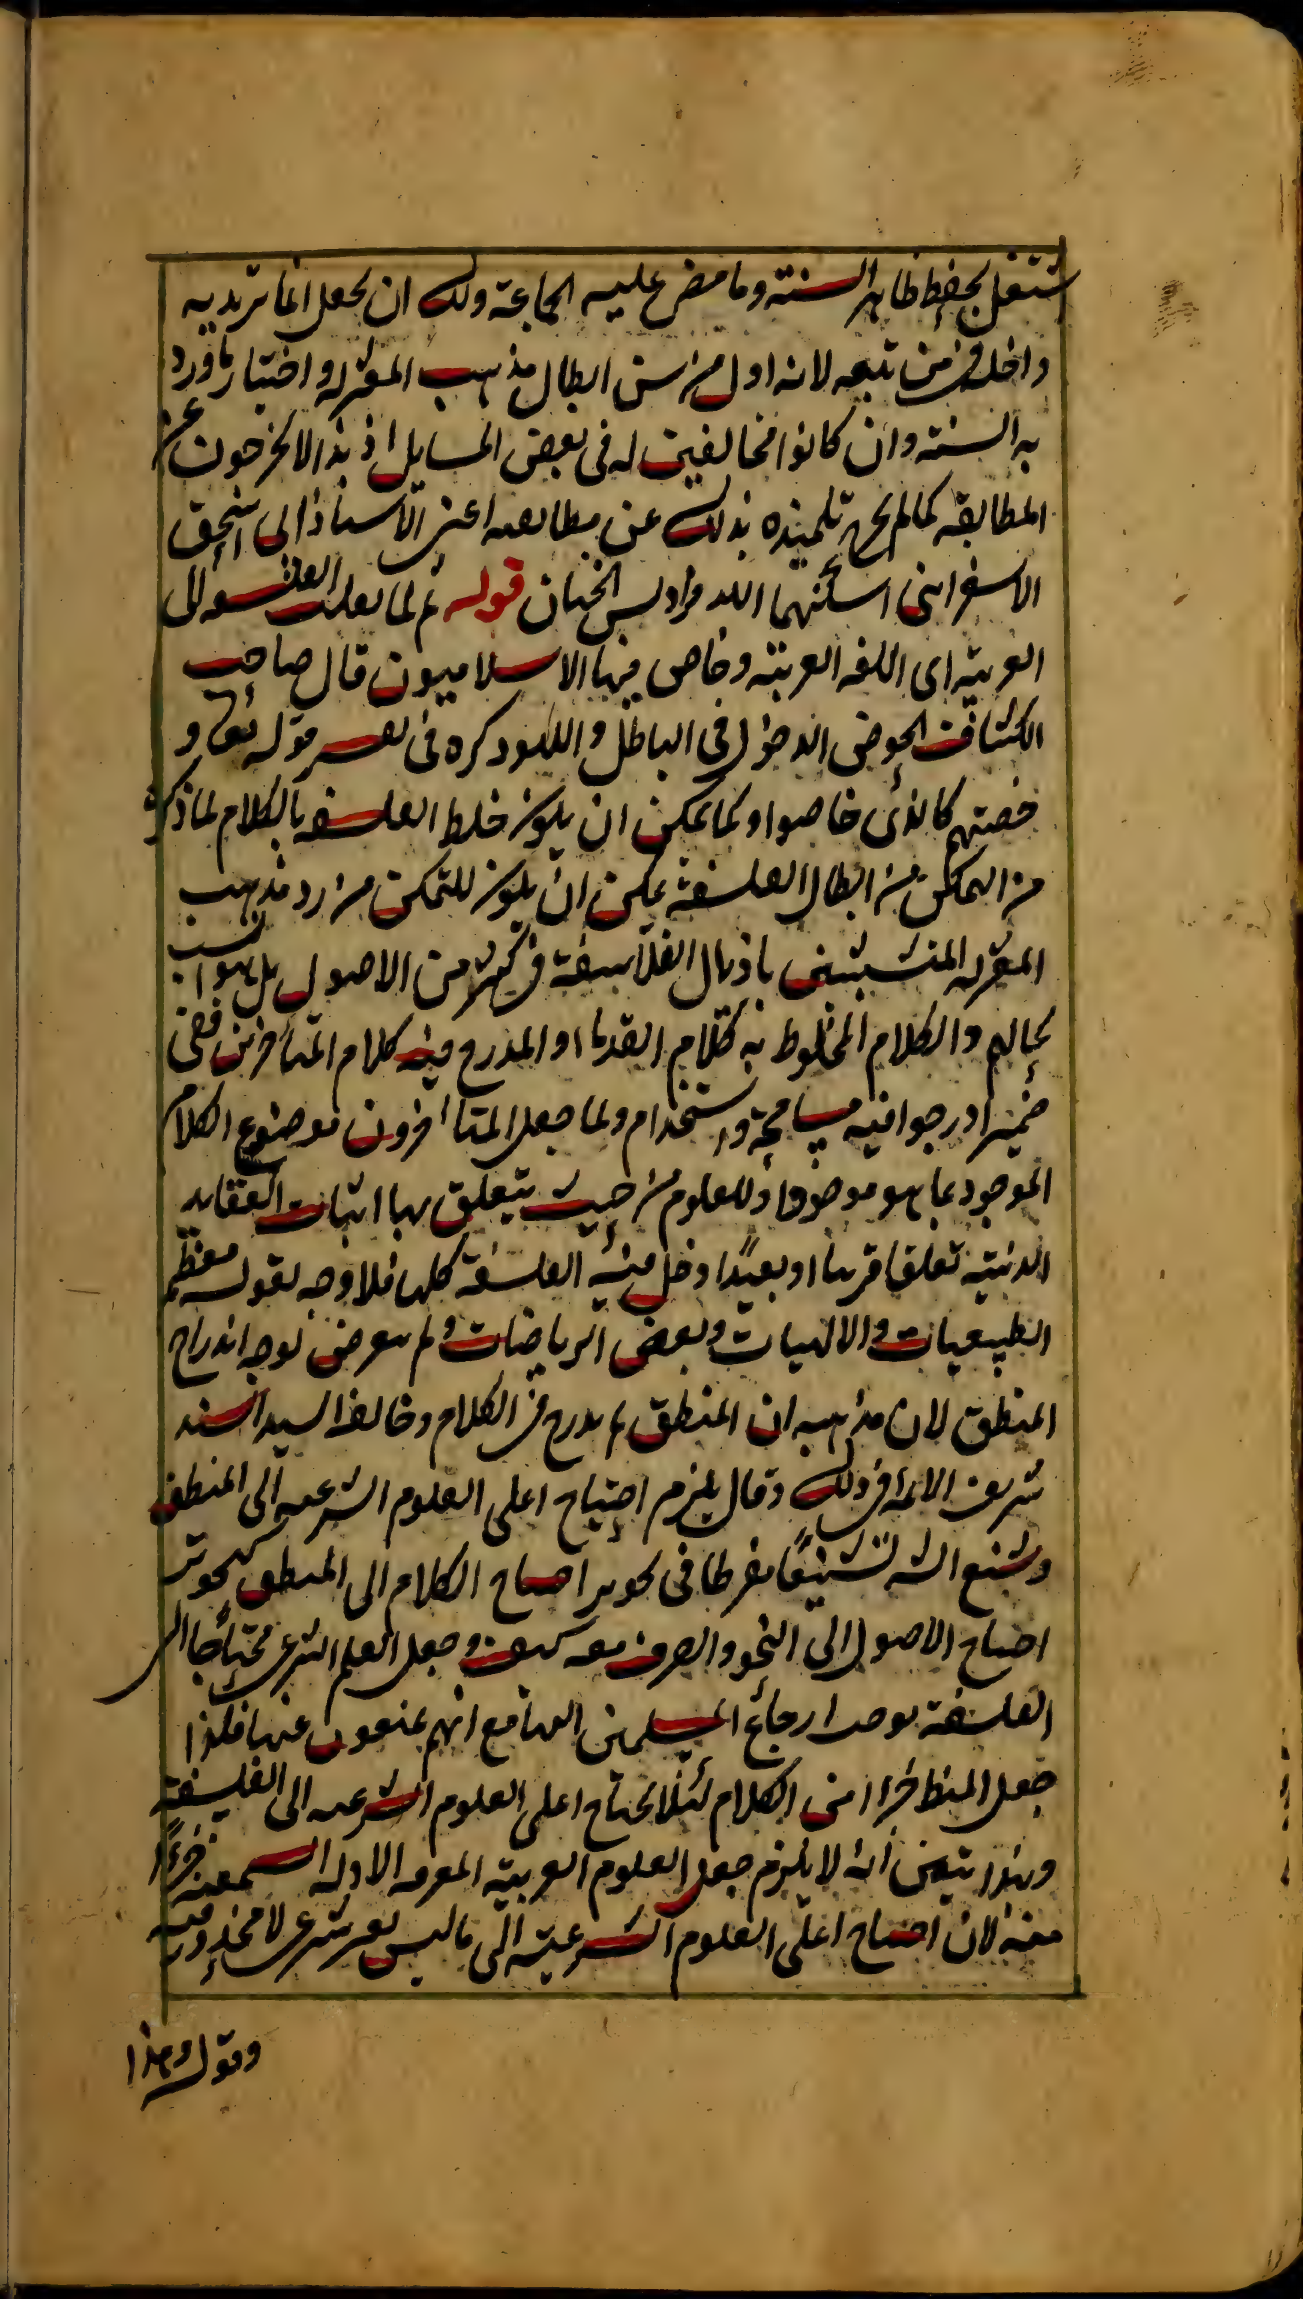 اشتغل بحفظ ظاهر السنة وما مضى عليه الجماعة ولك ان تجعل الماتريديه
داخلة فى من تبعه لانه اول من سن ابطال مذهب المعتزله واختيار ما ورد
به السنة وان كانوا مخالفين له فى بعض المسايل اذ بهذا لا يخرجون عن
المطابقه كما لم يخرج تلميذه بذلك عن مطابعه اعنى الاستاذ ابى اسحق
الاسفراينى اسكنهما الله فراديس الجنان قوله ثم لما نقلت الفلسفه الى
العربية اى اللغه العربيه وخاض فيها الاسلاميون قال صاحب
الكشاف الخوض الدخول فى الباطل واللهو ذكره فى تفسير قوله تعالى و
خضتم كالذى خاضوا وكما يمكن ان يكون خلط الفلسفه بالكلام لما ذكره
من التمكن من ابطال الفلسفة يمكن ان يكون للتمكن من رد مذهب
المعتزله المتشبثين باذيال الفلاسفة فى كثير من الاصول بل هو انسب
بحالهم والكلام المخلوط به كلام القدماء والمدرج فيه كلام المتأخرين ففى
ضمير ادرجوا فيه مسامحة واستخدام ولما جعل المتأخرون موضوع الكلام
الموجود بما هو موجود او المعلوم من حيث يتعلق بها اثبات العقايد
الدينيه تعلقا قريبا او بعيدًا دخل فيه الفلسفة كلها فلا وجه لقوله معظم
الطبيعيات والالهيات وبعض الرياضيات ولم يتعرض لوجه اندراج
المنطق لان مذهبه ان المنطق لم يدرج فى الكلام وخالفه السيد السند
شريف الائمه فى ذلك وقال يلزم احتياج اعلى العلوم الشرعيه الى المنطق
وشنع الشه تشنيعًا مفرطا فى تجويز احتياج الكلام الى المنطق كتجويز
احتياج الاصول الى النحو والصرف معه كيف وجعل العلم الشرعى محتاجا الى
الفلسفة يوجب ارجاع المسلمين اليها مع انهم يمنعون عنها فلذا
جعل المنطق جزءا من الكلام لئلا يحتاج اعلى العلوم الشرعيه الى الفلسفة
وبهذا يتبين انه لا يلزم جعل العلوم العربية المعرفه الادله السمعيه جزءًا
منه لان احتياج اعلى العلوم الشرعية الى ما ليس بغير شرعى لا محذور فيه
وقوله وهذا